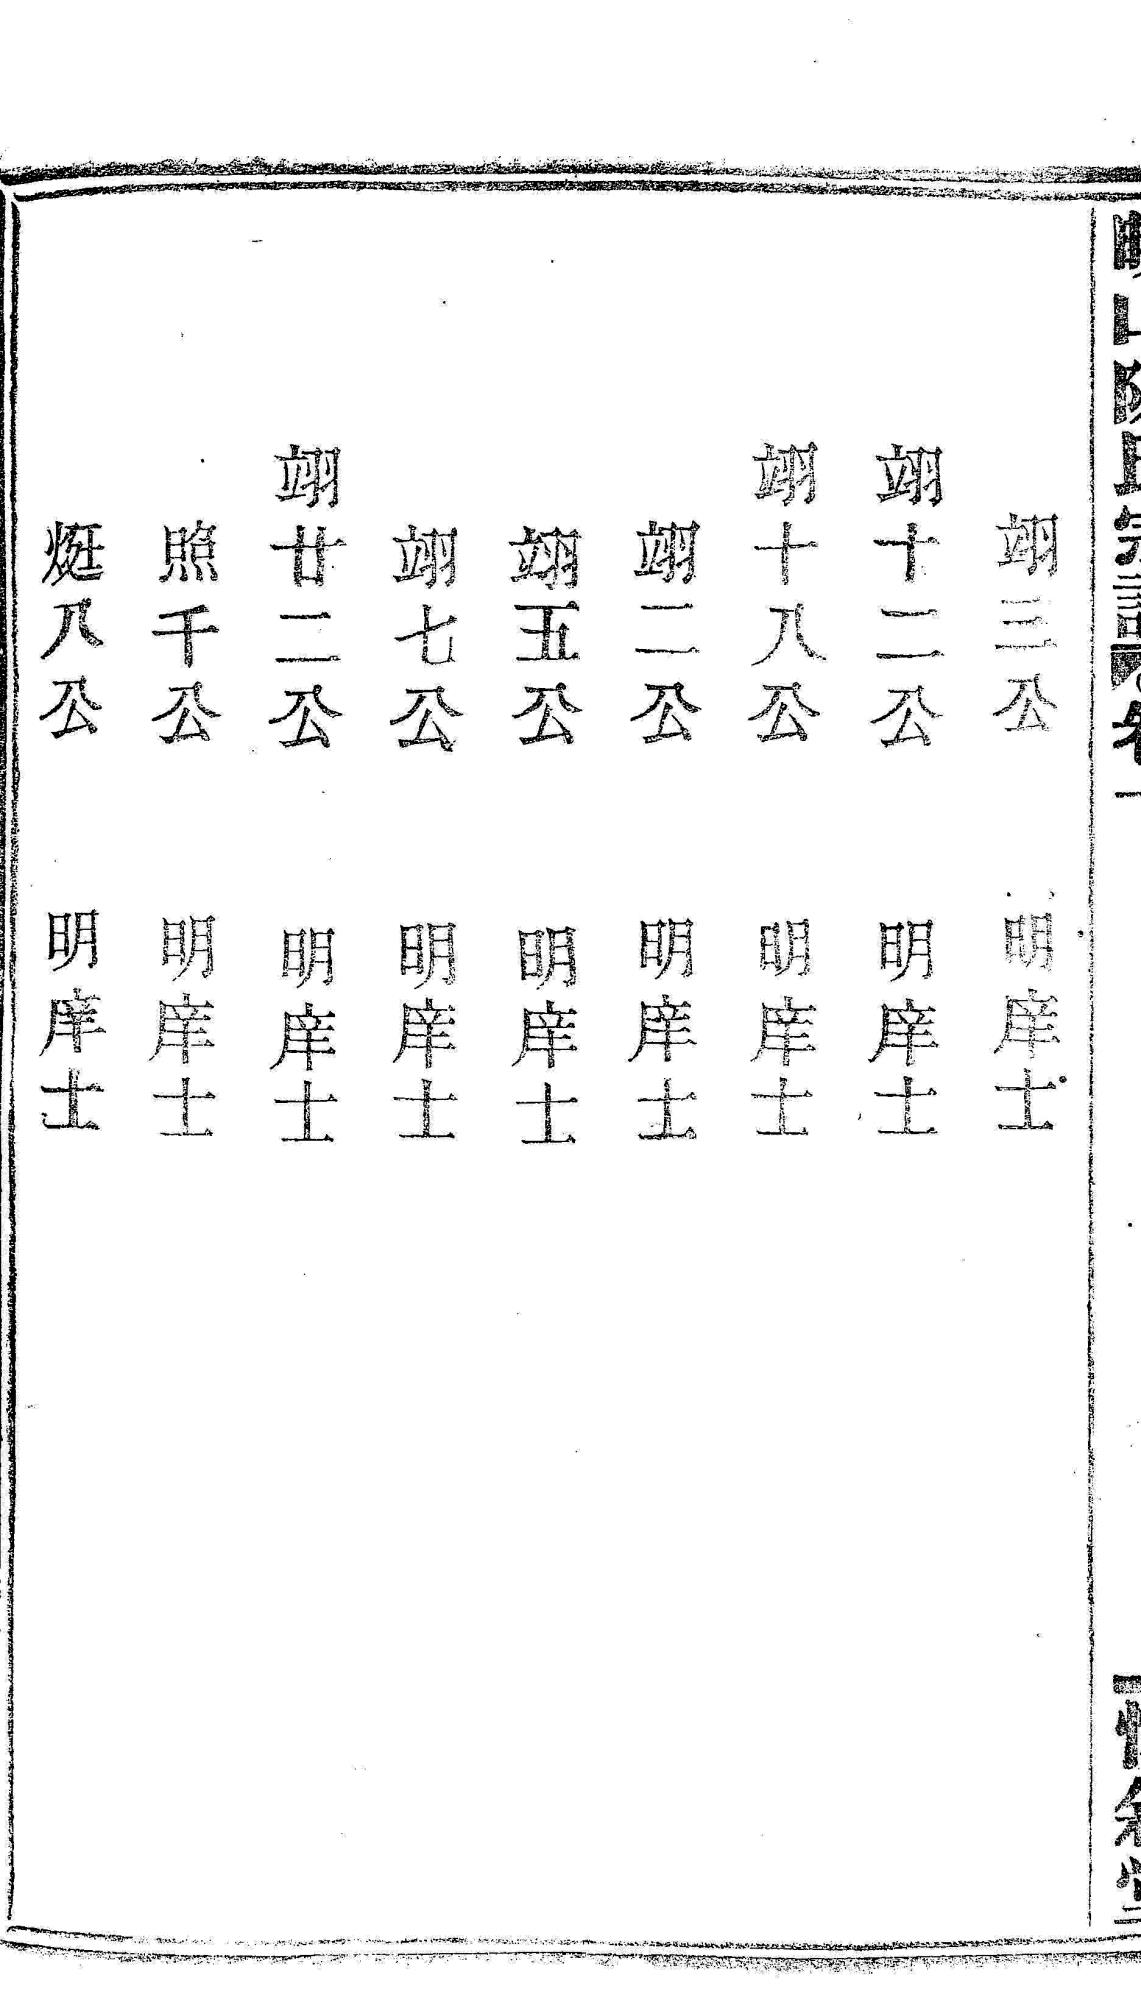 氏宗譜 卷一
翊三公 明庠士
翊十二公 明庠士
翊十八公 明庠士
翊二公 明庠士
翊五公 明庠士
翊七公 明庠士
翊廿二公 明庠士
照千公 明庠士
烶八公 明庠士